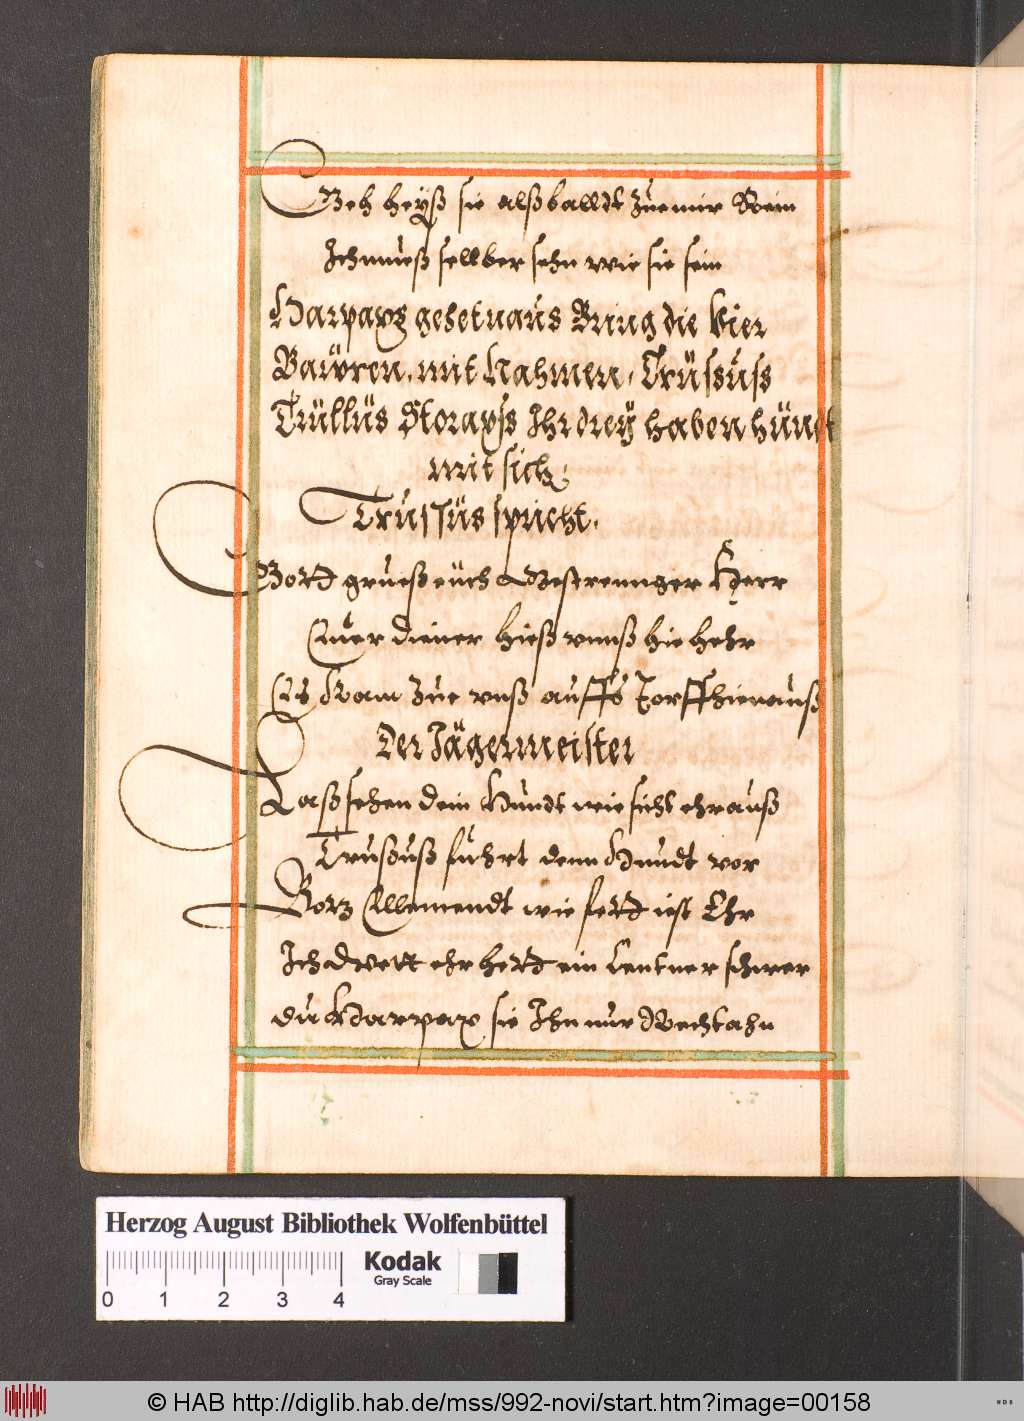 Geh heÿß sie alßballdt zue mir Rein
Ich mueß sellber sehn wie sie sein
Harpax gehet naus Bring die vier
Bawren, mit Nahmen, Trüssüss
Trüllüs Storaxss Ihr dreÿ haben hündt
mit sich.
Trussüs spricht.
Gott grueß eüch Gestrennger Herr
Euer diener hieß vnnß hie hehr
Es kam zue vnß auffs Torff hienauß
Der Jägermeister
Laß sehen dein Hundt wie sicht ehr auß
Trußuß führt denn Hundt vor
Botz Ellemendt wie fett ist Ehr
Ich wett ehr hett ein Centner schwer
du Harpax sie Ihn nur
Herzog August Bibliothek Wolfenbüttel
Kodak
Gray Scale
0 1 2 3 4
© HAB http://diglib.hab.de/mss/992-novi/start.htm?image=00158